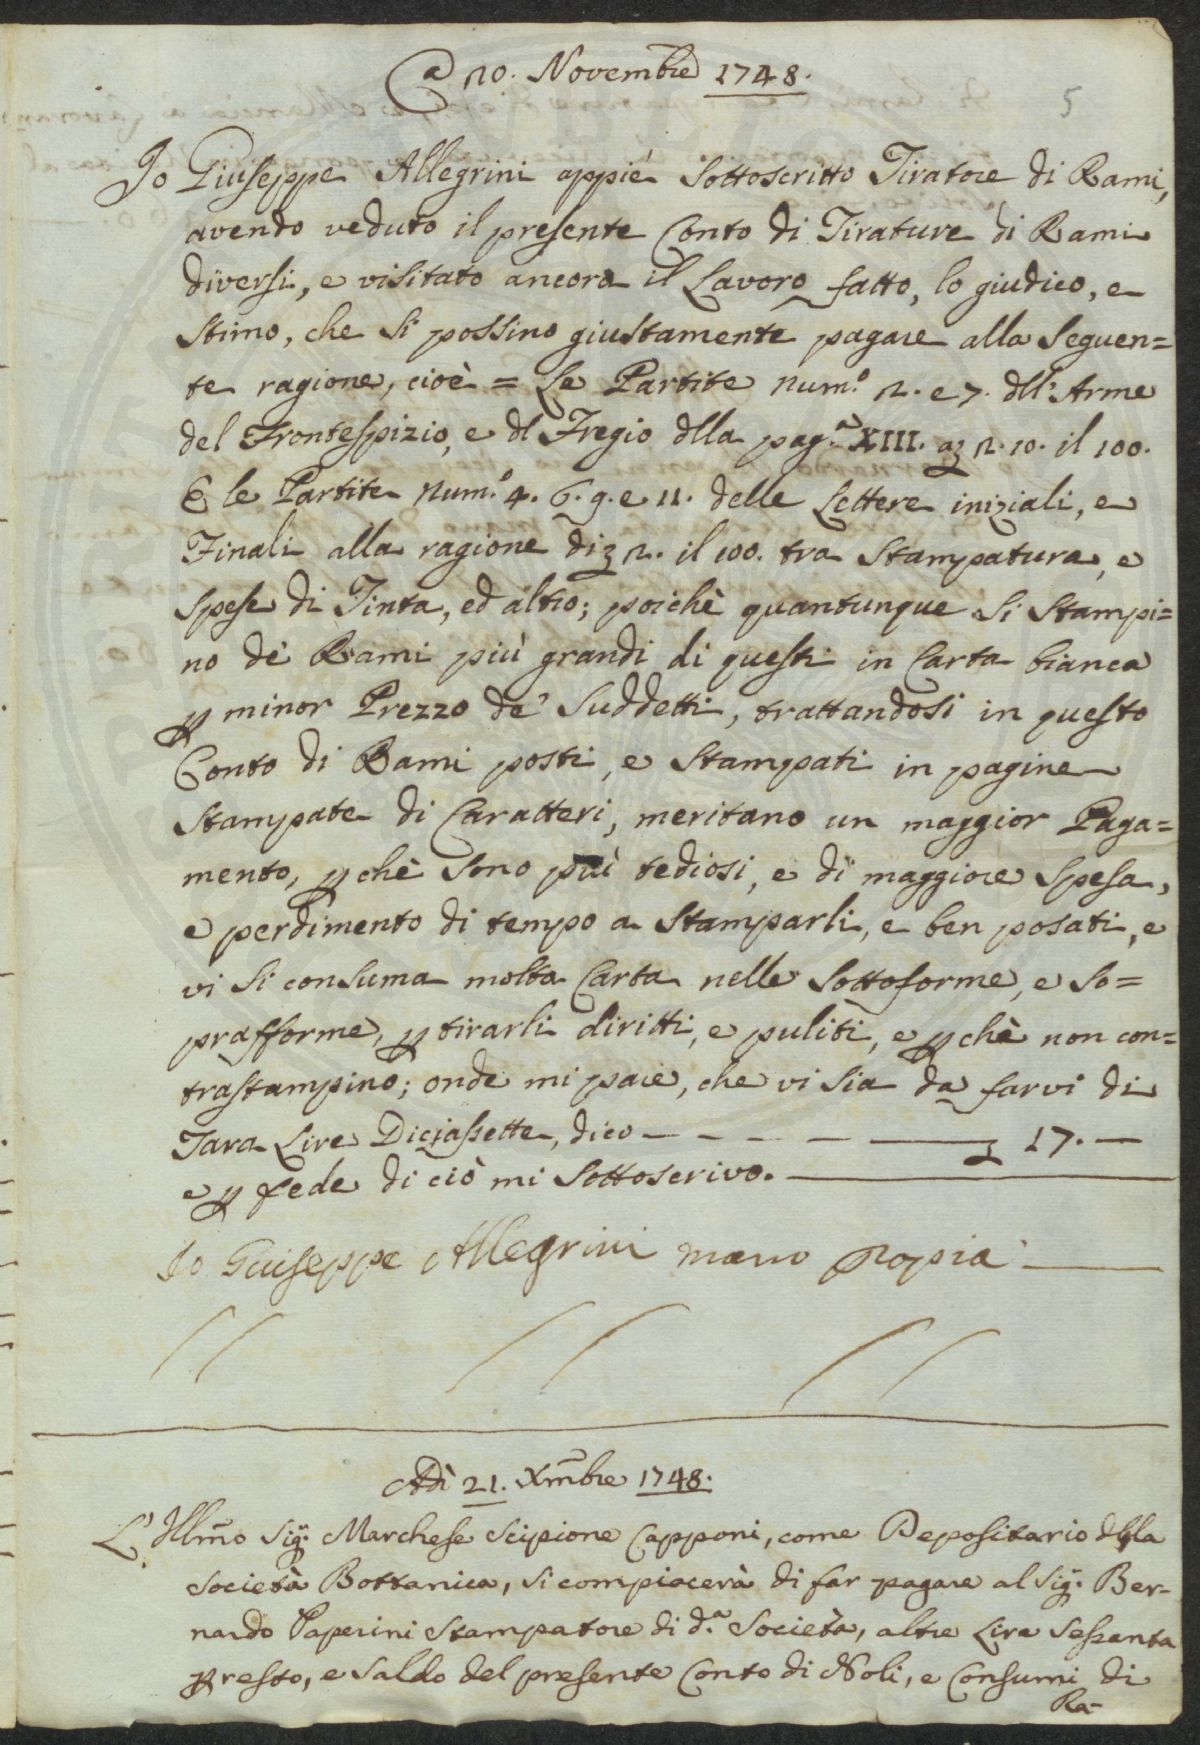 A 20. Novembre 1748.
5
Io Giuseppe Allegrini appiè sottoscritto Tiratore di Rami,
avendo veduto il presente Conto di Tirature di Rami
diversi, e visitato ancora il Lavoro fatto, lo giudico, e
stimo, che si possino giustamente pagare alla seguen=
te ragione, cioè = Le Partite num.º 2. e 7. dll' Arme
del Frontespizio, e dl Fregio dlla pag.ª XIII. a 2. 10. il 100.
E le Partite num.º 4. 6. 9. e 11. delle Lettere iniziali, e
Finali alla ragione di 2. il 100. tra stampatura, e
spese di Tinta, ed altro; poichè quantunque si stampi=
no de' Rami più grandi di questi in Carta bianca
p minor Prezzo de' suddetti, trattandosi in questo
Conto di Rami posti, e stampati in pagine
stampate di Caratteri, meritano un maggior Paga=
mento, pchè sono più tediosi, e di maggiore spesa,
e perdimento di tempo a stamparli, e ben posati, e
vi si consuma molta Carta nelle sottoforme, e so=
prafforme, p tirarli diritti, e puliti, e pchè non con=
trastampino; onde mi pare, che vi sia da farvi di
Tara Lire Diciassette, dico — — — — 17. —
e p fede di ciò mi sottoscrivo.
Io Guiseppe Allegrini mano propia
Adì 21. Xmbre 1748.
L'Illmo Sigr. Marchese Scipione Capponi, come Depositario dlla
Società Bottanica, si compiacerà di far pagare al Sigr. Ber=
nardo Paperini Stampatore di d.ª Società, altre Lire sessanta
p resto, e saldo del presente Conto di Noli, e Consumi di
Ra-